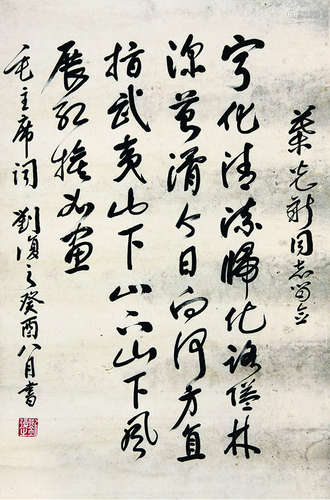 光新同志留念
宁化清流歸化路隘林
深苔滑今日向何方直
指武夷山下山下山下風
展紅旗如畫
毛主席詞 劉復之癸酉八月書